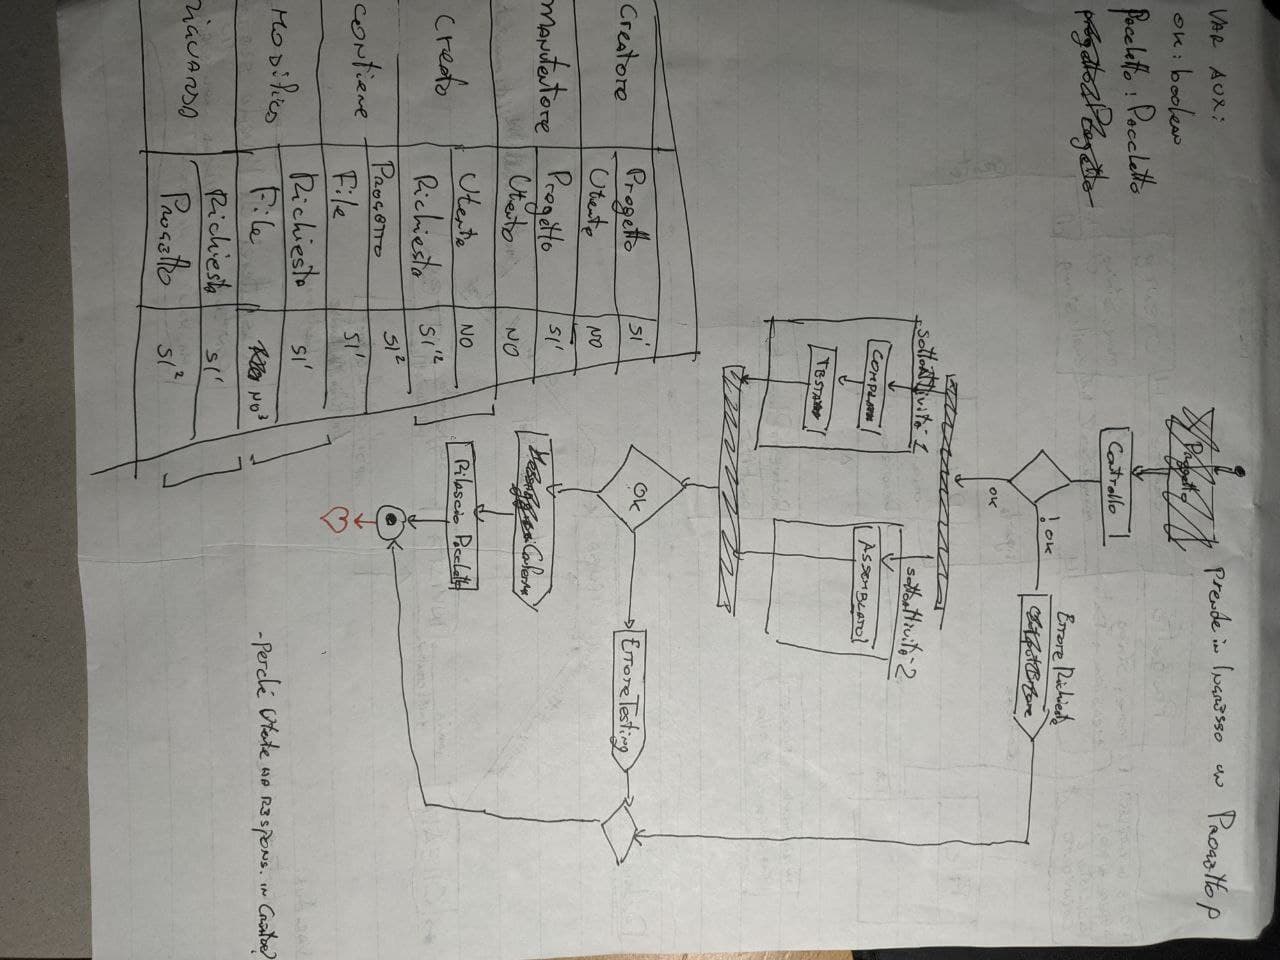 VAR AUX:
OK: boolean
Pacchetto: Pacchetto
progetto: Progetto
prende in Ingresso un Progetto p
Progetto
Controllo
! OK
Errore Richiesta
OK
sottoAttività-1
sottoattività-2
ASSEMBLATO
OK
Errore Testing
Conferma
Rilascio Pacchetto
Creatore
Progetto SI¹
Utente NO
MANUtentore
Progetto SI¹
Utente NO
Creato
Utente NO
Richiesta SI¹²
Contiene
PROGETTO SI²
File SI¹
Modifica
Richiesta SI¹
File NO³
RIGUARDA
Richiesta SI¹
Progetto SI²
- perché Utente HA RESPONS. IN Creatore?